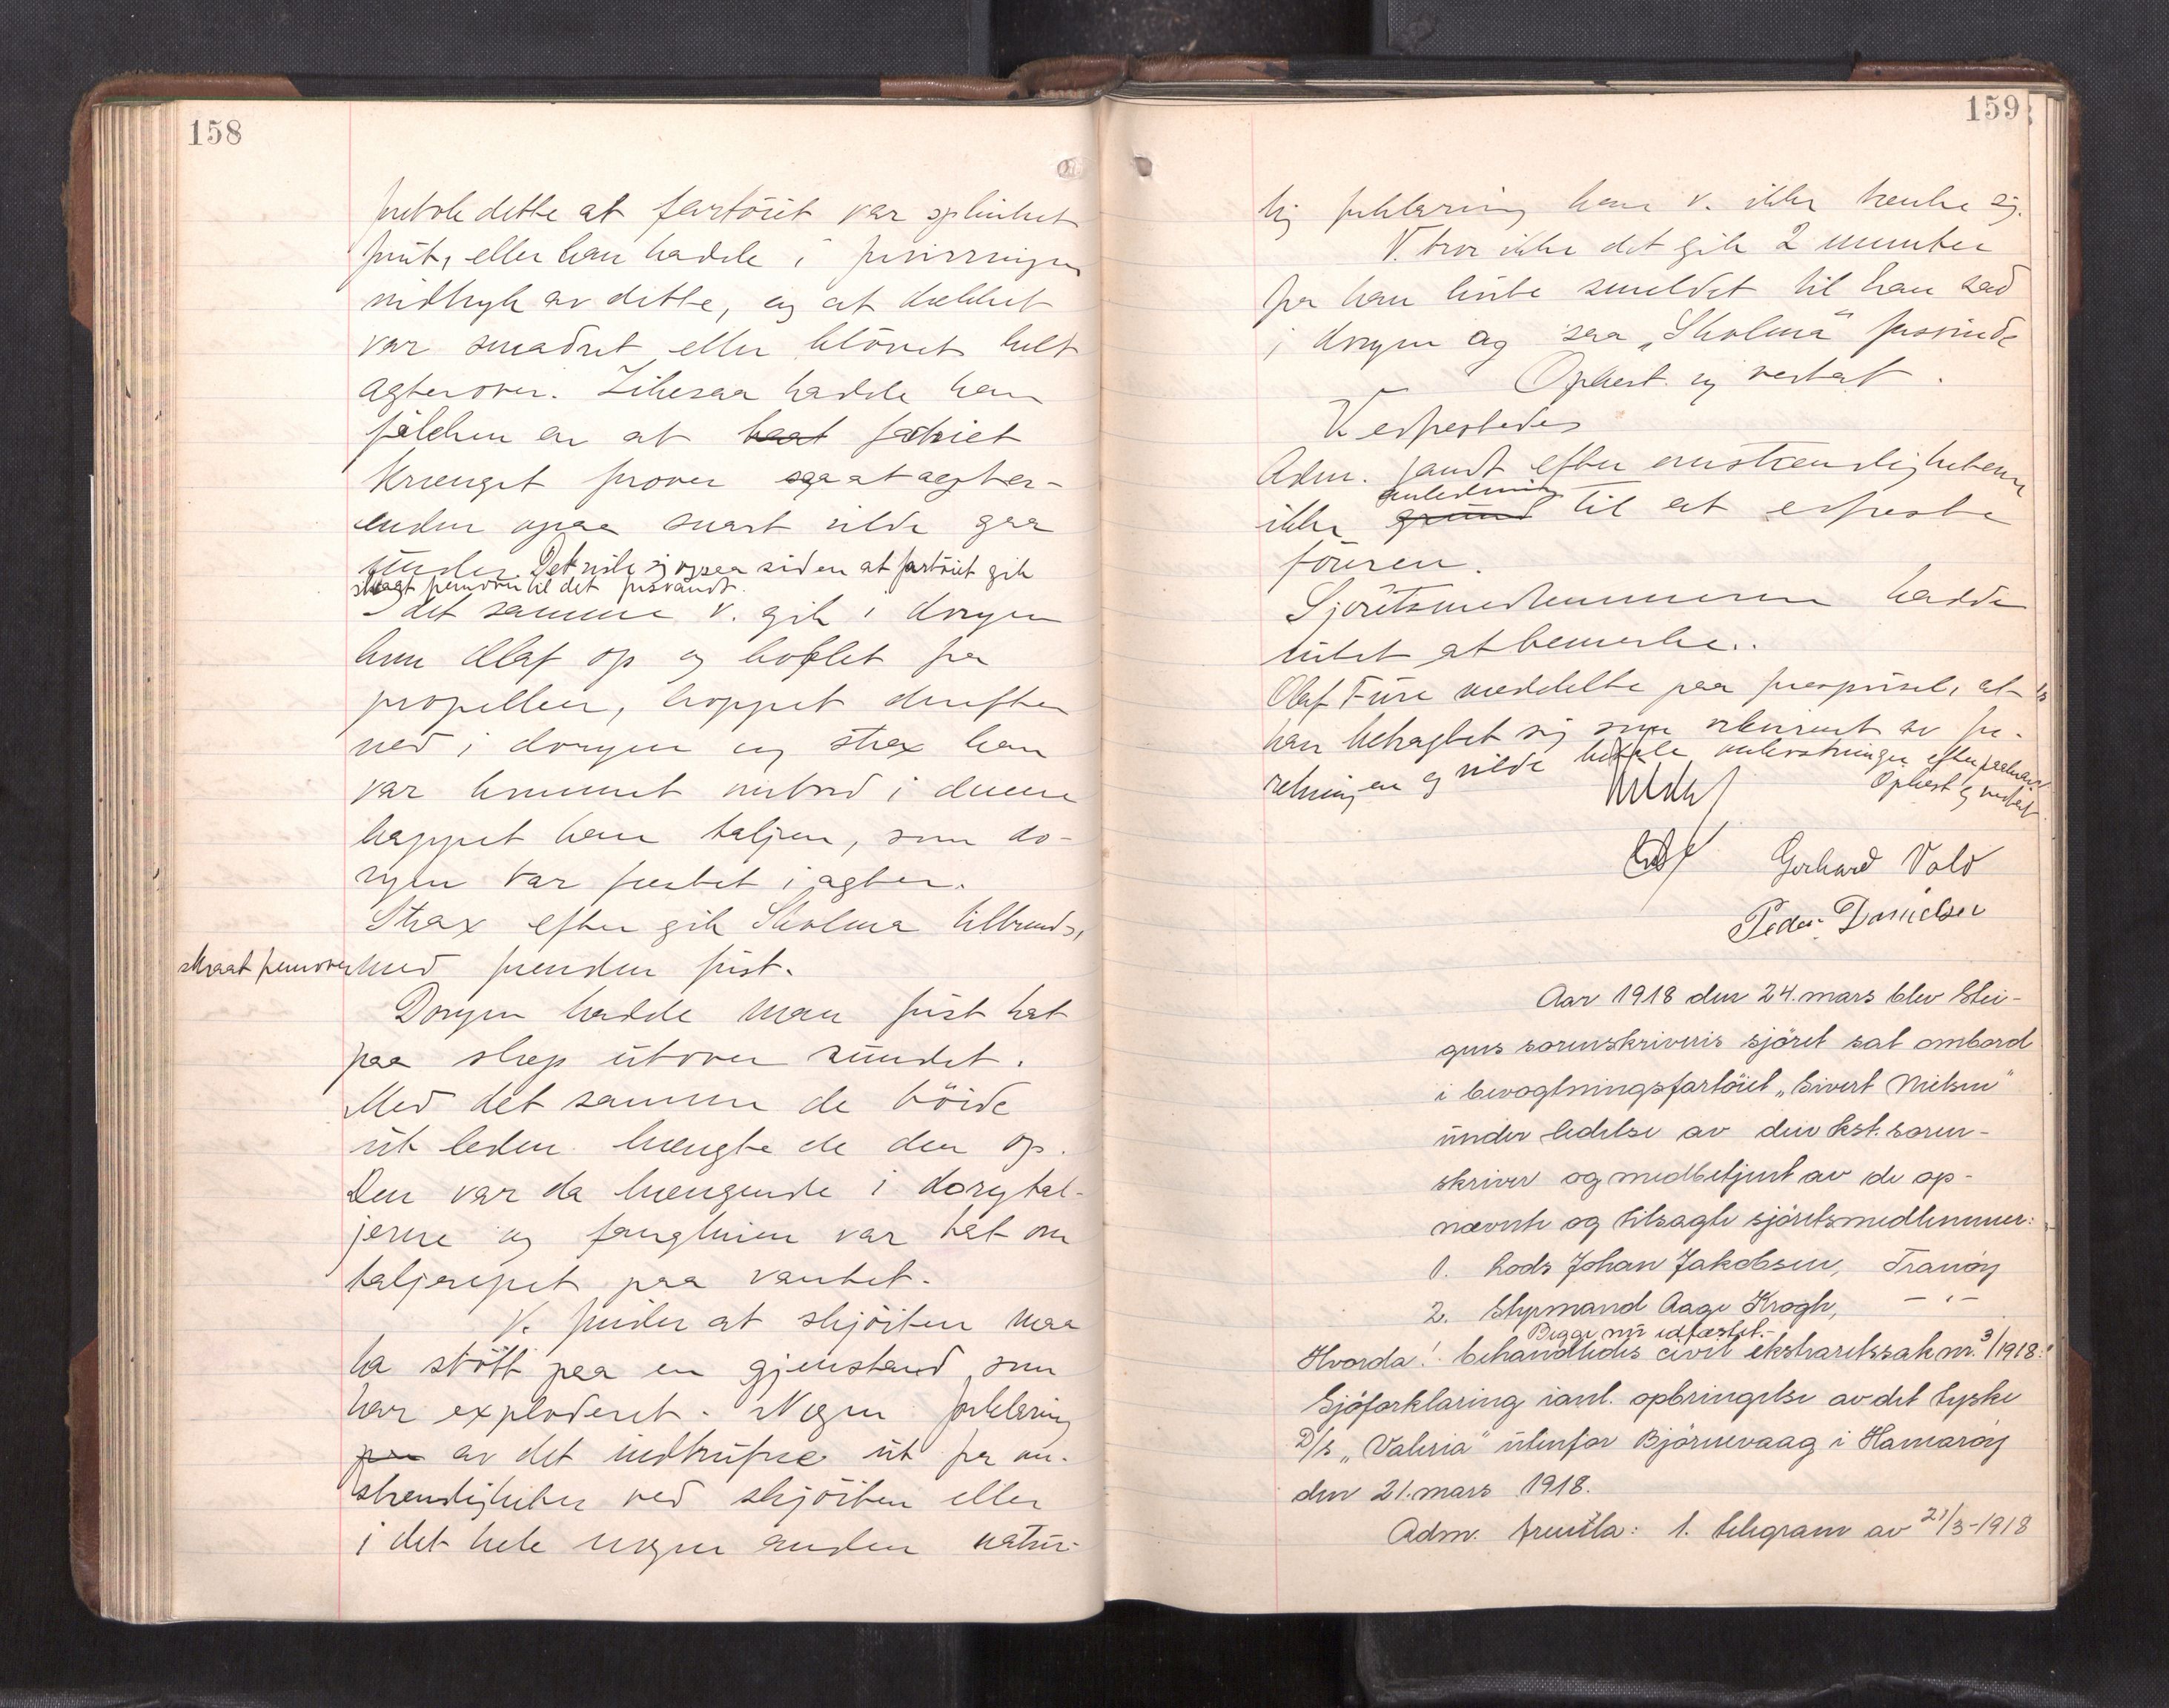 158
fortolk dette at fartöiet var splintret
forut, eller han hadde i forvirringen
indtryk av dette, og at dækket
var smadret eller klövet helt
agterover. Likesaa hadde han
fölelsen av at fartöiet
krænget forover saa at agter-
enden ogsaa snart vilde gaa
under. Det viste sig ogsaa siden at fartöiet gik
skraat forover til det forsvandt.
I det samme V. gik i doryen
kom Olaf op og koblet fra
propellen, hoppet derefter
ned i doryen og strax han
var kommet ombord i denne
kappet han taljen, som do-
ryen var festet i agter.
Strax efter gik Skolma tilbunds,
skraat forover med forenden först.
Doryen hadde man först hat
paa slæp utover sundet.
Med det samme de böide
ut leden hængte de den op.
Den var da hængende i dorytal-
jerne og fanglinen var tat om
taljerepet paa vantet.
V. finder at sköiten maa
ha stött paa en gjenstand som
har exploderet. Nogen forklaring
av det indtrufne ut fra om-
stændigheter ved sköiten eller
i det hele nogen anden natur-
159
lig forklaring kan V. ikke tænke sig.
V. tror ikke det gik 2 minuter
fra han hörte smeldet til han sad
i doryen og saa "Skolma" forsvinde
Oplæst og vedtat.
V. edfestedes
Adm. fandt efter omstændigheterne
ikke anledning til at edfeste
föreren.
Sjöretsmedlemmerne hadde
intet at bemerke.
Olaf Füre meddelte paa forespörsel, at
han betragtet sig som rekvirent av for-
retningen og vilde betale omkostningene efter paakrav
Oplæst og vedtat
Gerhard Vold
Peder Danielsen
Aar 1918 den 24. mars blev Stei-
gens sorenskriveris sjöret sat ombord
i bevogtningsfartöiet "Sivert Nielsen"
under ledelse av den kst. soren-
skriver og medbetjent av de op-
nævnte og tilsagte sjöretsmedlemmer:
1. Lods Johan Jakobsen, Tranöy
2. Styrmand Aage Krogh, — " —
Begge nu edfæstet.
Hvorda! behandledes civil ekstraretssak nr. 3/1918:
Sjöforklaring i anl. opbringelse av det tyske
D/s "Valeria" utenfor Björnevaag i Hamaröy
den 21. mars 1918.
Adm. fremla: 1. telegram av 21/3-1918